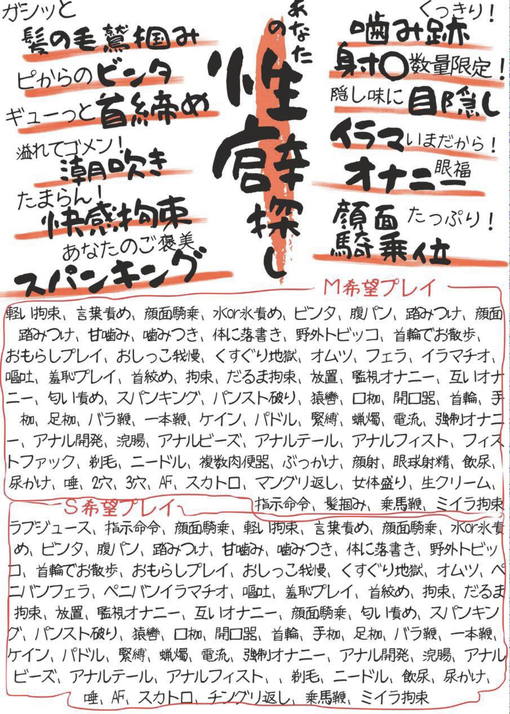 あなたの性癖探し
ガシッと
髪の毛鷲掴み
ピカらの ビンタ
ギューっと 首締め
溢れてゴメン!
潮吹き
たまらん!
快感拘束
あなたのご褒美
スパンキング
くっきり!
噛み跡
射〇 数量限定!
隠し味に 目隠し
イラマ いまだから!
オナニー 眼福
顔面騎乗位 たっぷり!
M希望プレイ
軽い拘束、言葉責め、顔面騎乗、水or氷責め、ビンタ、腹パン、踏みつけ、顔面
踏みつけ、甘噛み、噛みつき、体に落書き、野外トビッコ、首輪でお散歩、
おもらしプレイ、おしっこ我慢、くすぐり地獄、オムツ、フェラ、イラマチオ、
嘔吐、羞恥プレイ、首絞め、拘束、だるま拘束、放置、監視オナニー、互いオナ
ニー、匂い責め、スパンキング、パンスト破り、猿轡、口枷、開口器、首輪、手
枷、足枷、バラ鞭、一本鞭、ケイン、パドル、緊縛、蝋燭、電流、強制オナニ
ー、アナル開発、浣腸、アナルビーズ、アナルテール、アナルフィスト、フィス
トファック、剃毛、ニードル、複数肉便器、ぶっかけ、顔射、眼球射精、飲尿、
尿かけ、唾、2穴、3穴、AF、スカトロ、マングリ返し、女体盛り、生クリーム、
指示命令、髪掴み、乗馬鞭、ミイラ拘束
S希望プレイ
ラブジュース、指示命令、顔面騎乗、軽い拘束、言葉責め、顔面騎乗、水or氷責
め、ビンタ、腹パン、踏みつけ、甘噛み、噛みつき、体に落書き、野外トビッ
コ、首輪でお散歩、おもらしプレイ、おしっこ我慢、くすぐり地獄、オムツ、ペ
ニバンフェラ、ペニバンイラマチオ、嘔吐、羞恥プレイ、首絞め、拘束、だるま
拘束、放置、監視オナニー、互いオナニー、顔面騎乗、匂い責め、スパンキン
グ、パンスト破り、猿轡、口枷、開口器、首輪、手枷、足枷、バラ鞭、一本鞭、
ケイン、パドル、緊縛、蝋燭、電流、強制オナニー、アナル開発、浣腸、アナル
ビーズ、アナルテール、アナルフィスト、、剃毛、ニードル、飲尿、尿かけ、
唾、AF、スカトロ、チングリ返し、乗馬鞭、ミイラ拘束